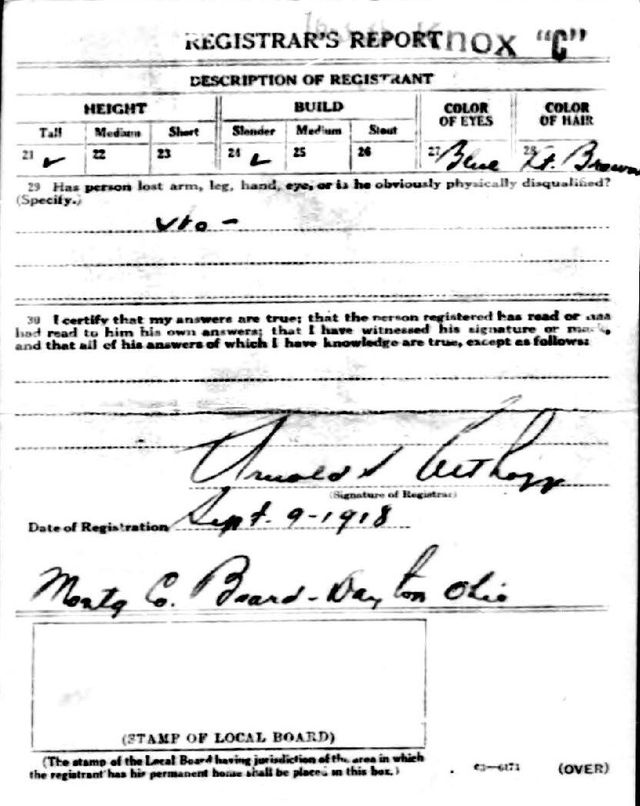 REGISTRAR'S REPORT nox "C"
DESCRIPTION OF REGISTRANT
HEIGHT BUILD COLOR OF EYES COLOR OF HAIR
Tall Medium Short Slender Medium Stout
21 ✓ 22 23 24 ✓ 25 26 27 Blue 28 Lt. Brown
29 Has person lost arm, leg, hand, eye, or is he obviously physically disqualified?
(Specify.)
No -
30 I certify that my answers are true; that the person registered has read or has
had read to him his own answers; that I have witnessed his signature or mark,
and that all of his answers of which I have knowledge are true, except as follows:
Arnold
(Signature of Registrar)
Date of Registration Sept. 9-1918
Montg Co. Board - Dayton Ohio
(STAMP OF LOCAL BOARD)
(The stamp of the Local Board having jurisdiction of the area in which
the registrant has his permanent home shall be placed in this box.)
03—6171 (OVER)